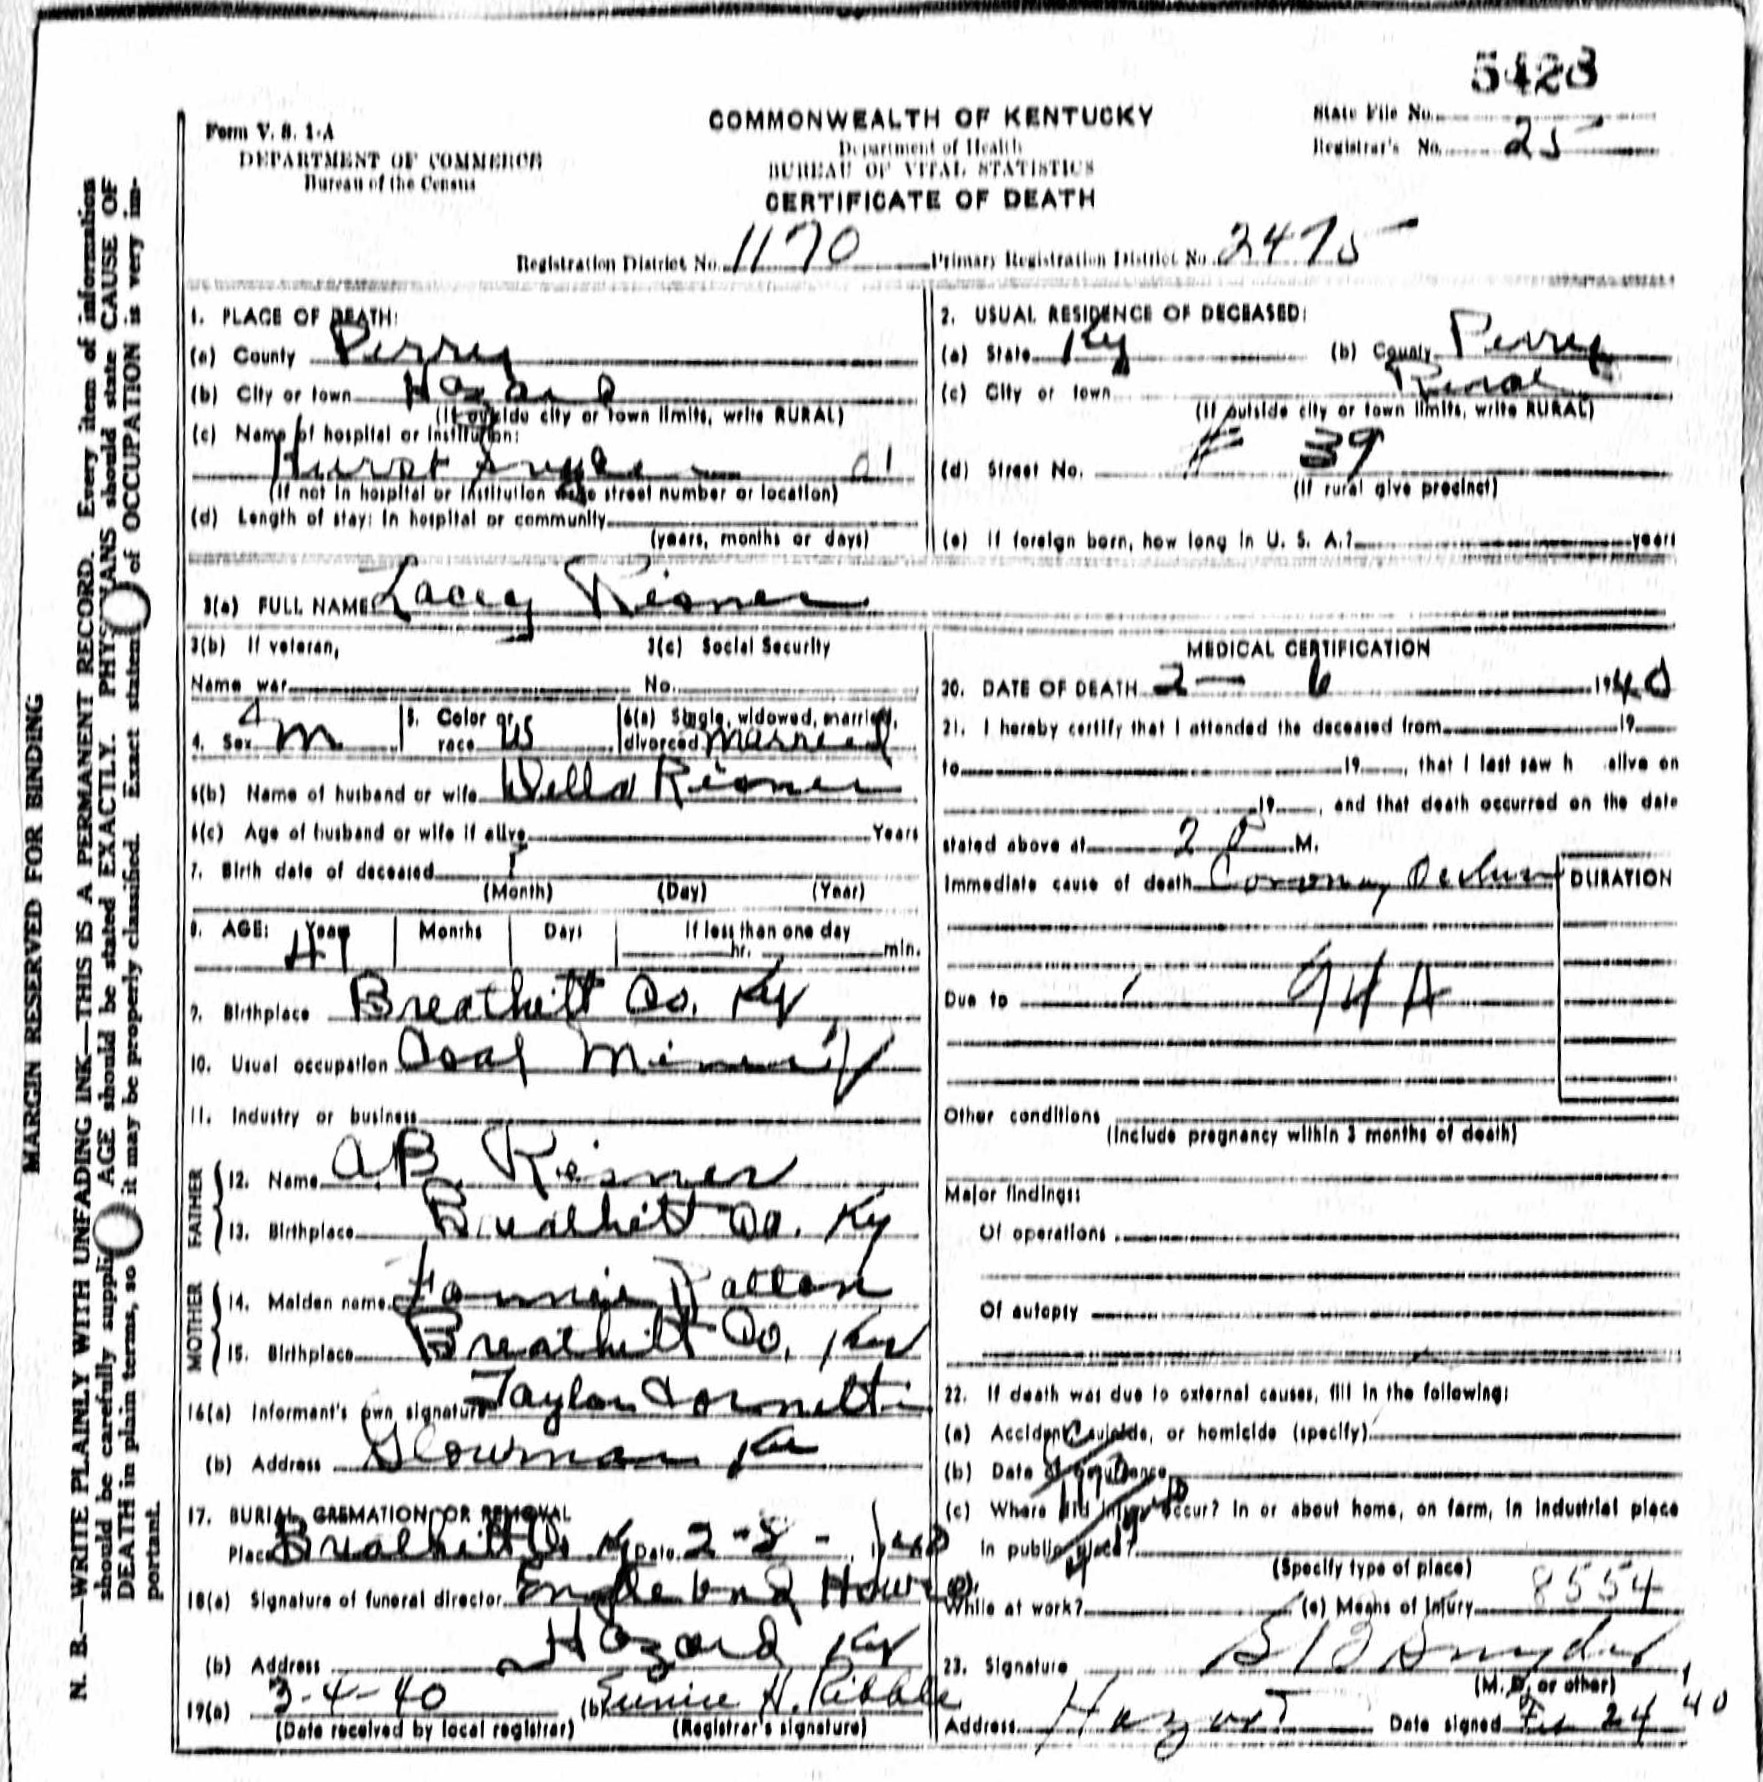 5428
Form V. S. 1-A
DEPARTMENT OF COMMERCE
Bureau of the Census
COMMONWEALTH OF KENTUCKY
Department of Health
BUREAU OF VITAL STATISTICS
CERTIFICATE OF DEATH
State File No.
Registrar's No. 25
Registration District No. 1170 Primary Registration District No. 2475
1. PLACE OF DEATH:
(a) County Perry
(b) City or town Hazard
(If outside city or town limits, write RURAL)
(c) Name of hospital or institution:
Hurst Snyder
(If not in hospital or institution give street number or location)
(d) Length of stay: In hospital or community
(years, months or days)
2. USUAL RESIDENCE OF DECEASED:
(a) State Ky (b) County Perry
(c) City or town Rural
(If outside city or town limits, write RURAL)
(d) Street No. # 39
(If rural give precinct)
(e) If foreign born, how long in U. S. A.? years
3(a) FULL NAME Lacey Risner
3(b) If veteran, 3(c) Social Security
Name war No.
4. Sex m 5. Color or race W 6(a) Single, widowed, married, divorced married
6(b) Name of husband or wife Della Risner
6(c) Age of husband or wife if alive Years
7. Birth date of deceased
(Month) (Day) (Year)
8. AGE: Years 41 Months Days If less than one day
hr. min.
9. Birthplace Breathitt Co. Ky
10. Usual occupation Coal Miner
11. Industry or business
FATHER
12. Name A.B. Risner
13. Birthplace Breathitt Co. Ky
MOTHER
14. Maiden name Fannie Patton
15. Birthplace Breathitt Co. Ky
16(a) Informant's own signature Taylor Cornett
(b) Address Glowmar Ky
17. BURIAL CREMATION OR REMOVAL
Place Breathitt Co Ky Date 2-8-1940
18(a) Signature of funeral director Engle and
(b) Address Hazard Ky
19(a) 3-4-40 (b) Eunice H. Ribble
(Date received by local registrar) (Registrar's signature)
MEDICAL CERTIFICATION
20. DATE OF DEATH 2 - 6 1940
21. I hereby certify that I attended the deceased from 19
to 19 , that I last saw h alive on
19 , and that death occurred on the date
stated above at 2 P M.
Immediate cause of death Coronary Occlusion
DURATION
Due to 94A
Other conditions
(Include pregnancy within 3 months of death)
Major findings:
Of operations
Of autopsy
22. If death was due to external causes, fill in the following:
(a) Accident, suicide, or homicide (specify)
(b) Date of occurrence
(c) Where did injury occur? In or about home, on farm, in industrial place
in public place?
(Specify type of place)
While at work? (e) Means of Injury 8554
23. Signature Snyder
(M. D. or other)
Address Hazard Date signed Feb 24 40
MARGIN RESERVED FOR BINDING
N. B.—WRITE PLAINLY WITH UNFADING INK—THIS IS A PERMANENT RECORD. Every item of information
should be carefully supplied AGE should be stated EXACTLY. PHYSICIANS should state CAUSE OF
DEATH in plain terms, so it may be properly classified. Exact statement of OCCUPATION is very im-
portant.